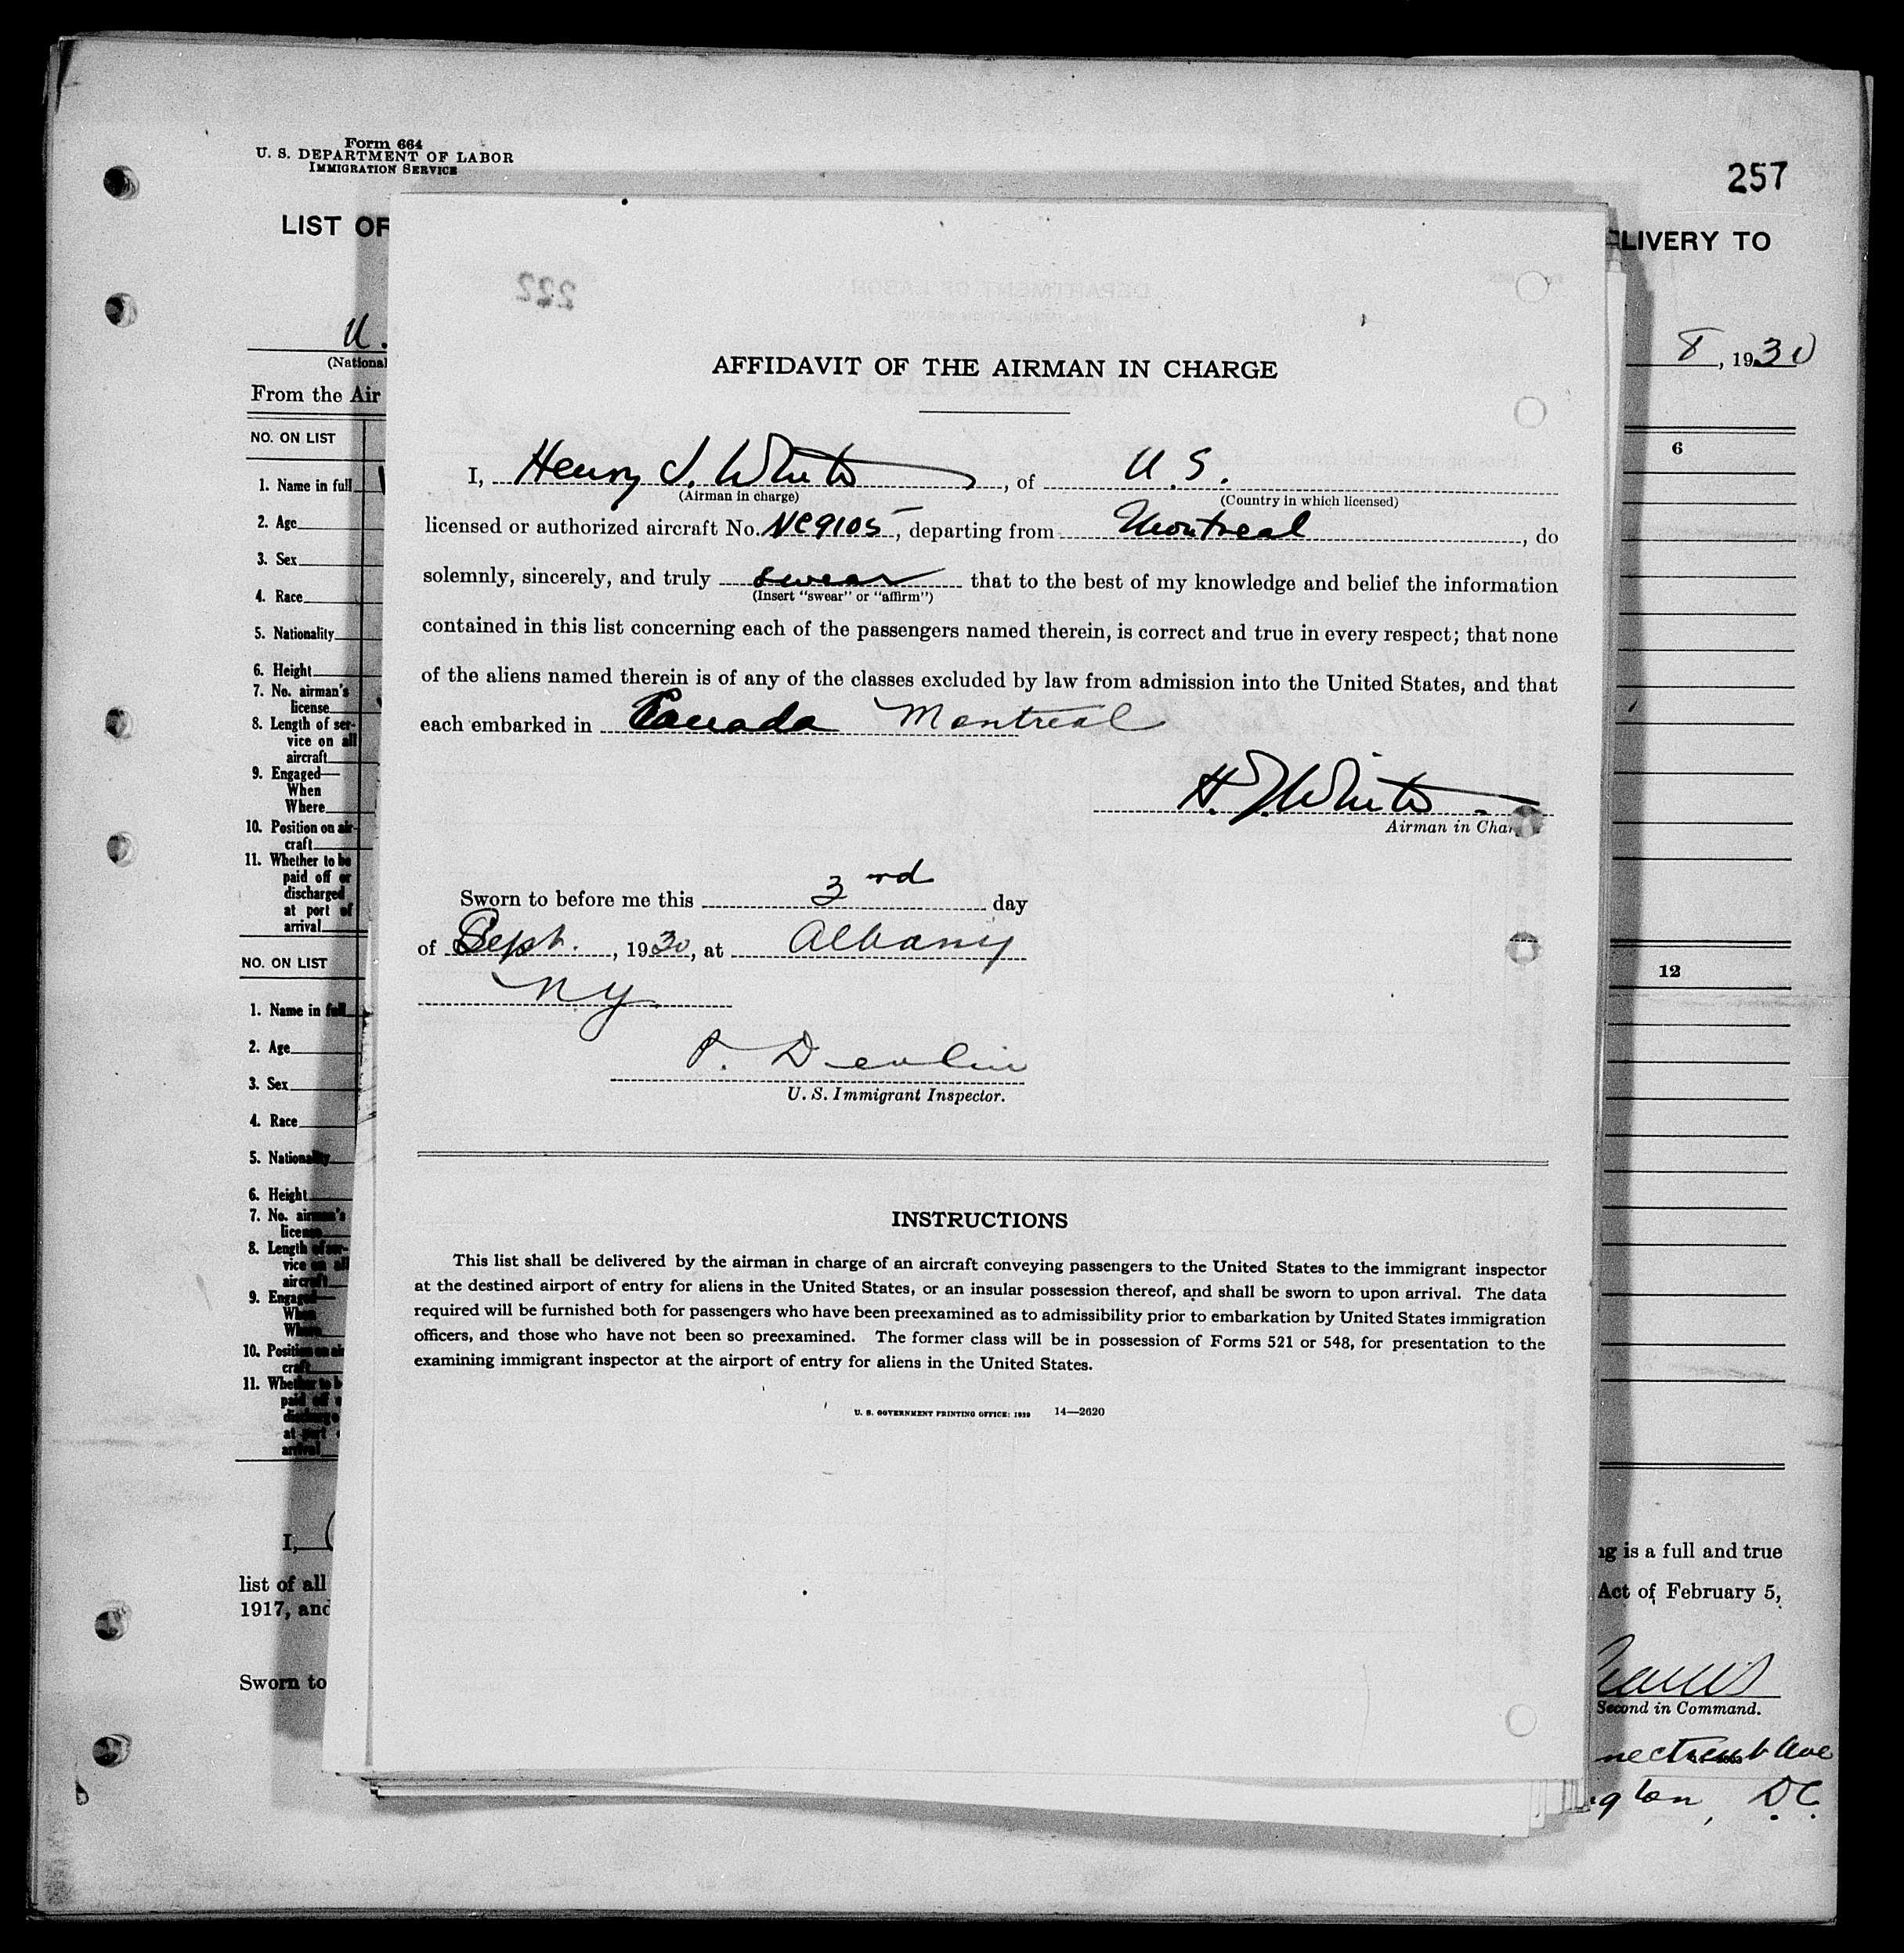 Form 664
U. S. DEPARTMENT OF LABOR
IMMIGRATION SERVICE
257
LIST OF
LIVERY TO
U.
(National
8, 1930
From the Air
NO. ON LIST
6
1. Name in full
2. Age
3. Sex
4. Race
5. Nationality
6. Height
7. No. airman's
license
8. Length of ser-
vice on all
aircraft
9. Engaged—
When
Where
10. Position on air-
craft
11. Whether to be
paid off or
discharged
at port of
arrival
NO. ON LIST
12
1. Name in full
2. Age
3. Sex
4. Race
5. Nationality
6. Height
7. No. airman's
license
8. Length of ser-
vice on all
aircraft
9. Engaged—
When
Where
10. Position on air
craft
11. Whether to b
paid off
discharge
at port
arrival
I,
list of all
1917, and
Sworn to
222
AFFIDAVIT OF THE AIRMAN IN CHARGE
I, Henry J. White, of U.S.
(Airman in charge) (Country in which licensed)
licensed or authorized aircraft No. NC9105, departing from Montreal, do
solemnly, sincerely, and truly swear that to the best of my knowledge and belief the information
(Insert "swear" or "affirm")
contained in this list concerning each of the passengers named therein, is correct and true in every respect; that none
of the aliens named therein is of any of the classes excluded by law from admission into the United States, and that
each embarked in Canada Montreal
H. J. White
Airman in Char
Sworn to before me this 3rd day
of Sept., 1930, at Albany
N.Y.
P. Devlin
U. S. Immigrant Inspector.
INSTRUCTIONS
This list shall be delivered by the airman in charge of an aircraft conveying passengers to the United States to the immigrant inspector
at the destined airport of entry for aliens in the United States, or an insular possession thereof, and shall be sworn to upon arrival. The data
required will be furnished both for passengers who have been preexamined as to admissibility prior to embarkation by United States immigration
officers, and those who have not been so preexamined. The former class will be in possession of Forms 521 or 548, for presentation to the
examining immigrant inspector at the airport of entry for aliens in the United States.
U. S. GOVERNMENT PRINTING OFFICE: 1929 14—2620
ng is a full and true
Act of February 5,
Second in Command.
necticut Ave
gton, D.C.